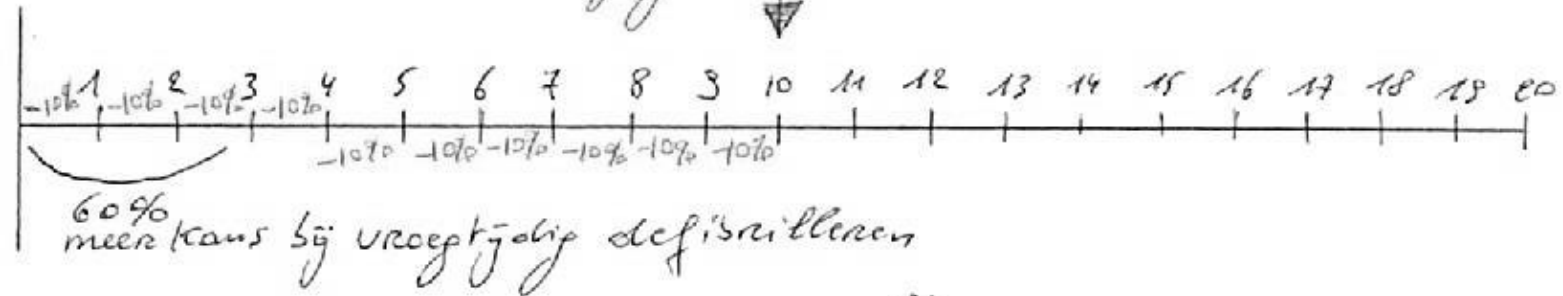 1 2 3 4 5 6 7 8 9 10 11 12 13 14 15 16 17 18 19 20
-10% -10% -10% -10%
-10% -10% -10% -10% -10% -10%
60%
meer kans bij vroegtijdig defibrilleren